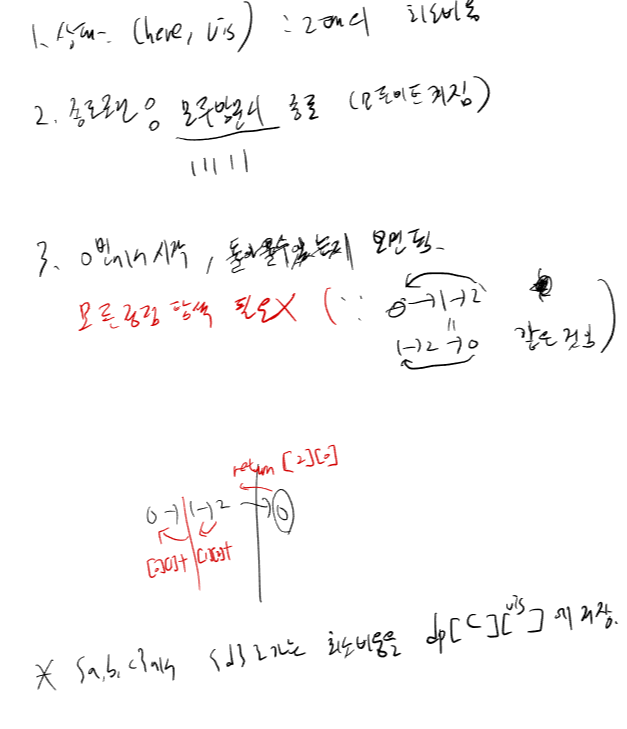 1. 상태는 (here, vis) : 그때의 최소비용
2. 종료조건은 모두방문시 종료 (모든비트켜짐)
11111
3. 0번에서 시작, 돌아올수있는지 보면 됨.
모든경로 탐색 필요X (∵ 0→1→2
"
1→2→0 같은 것)
return [2][0]
0→1→2→0
[0][1]+ [1][2]+
* {a,b,c}에서 {d}로가는 최소비용을 dp[c][vis]에 저장.